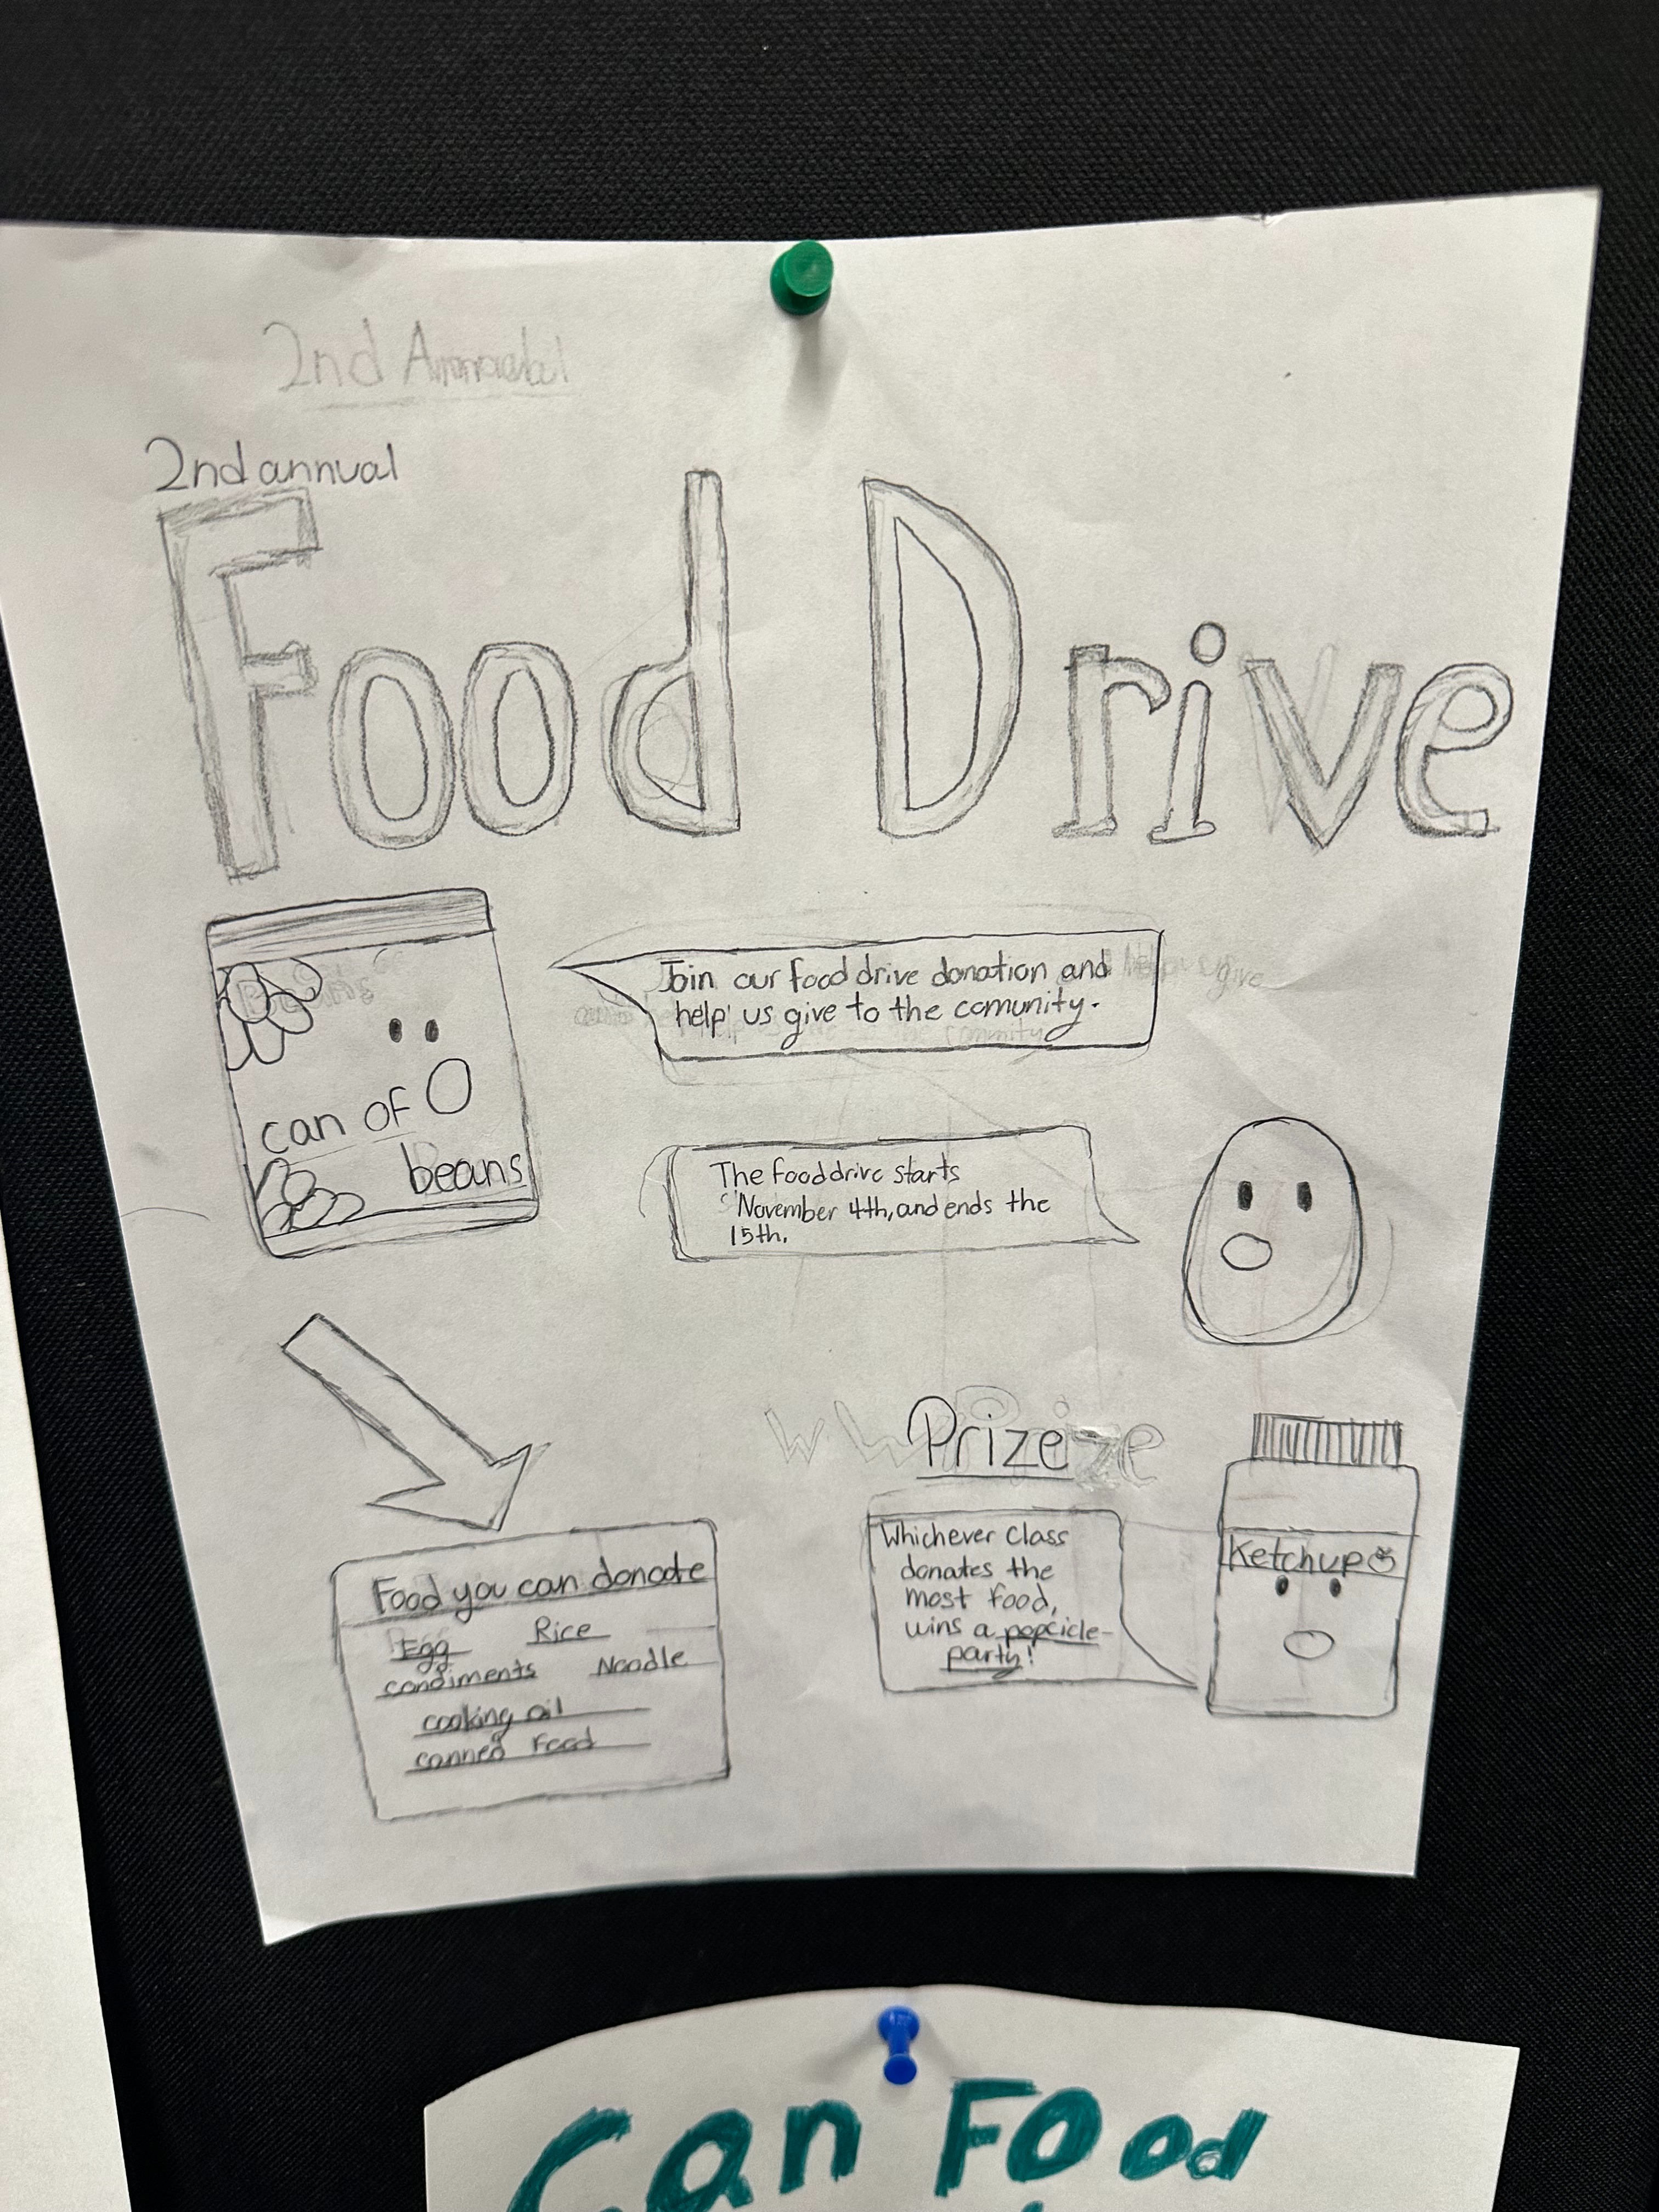 2nd
2nd annual
Food Drive
Join our food drive donation and
help us give to the comunity.
can of
beans
The food drive starts
November 4th, and ends the
15th.
Prize
Whichever class
donates the
most food,
wins a popcicle-
party!
Ketchup
Food you can donate
Egg Rice
condiments Noodle
cooking oil
canned Food
Can Food